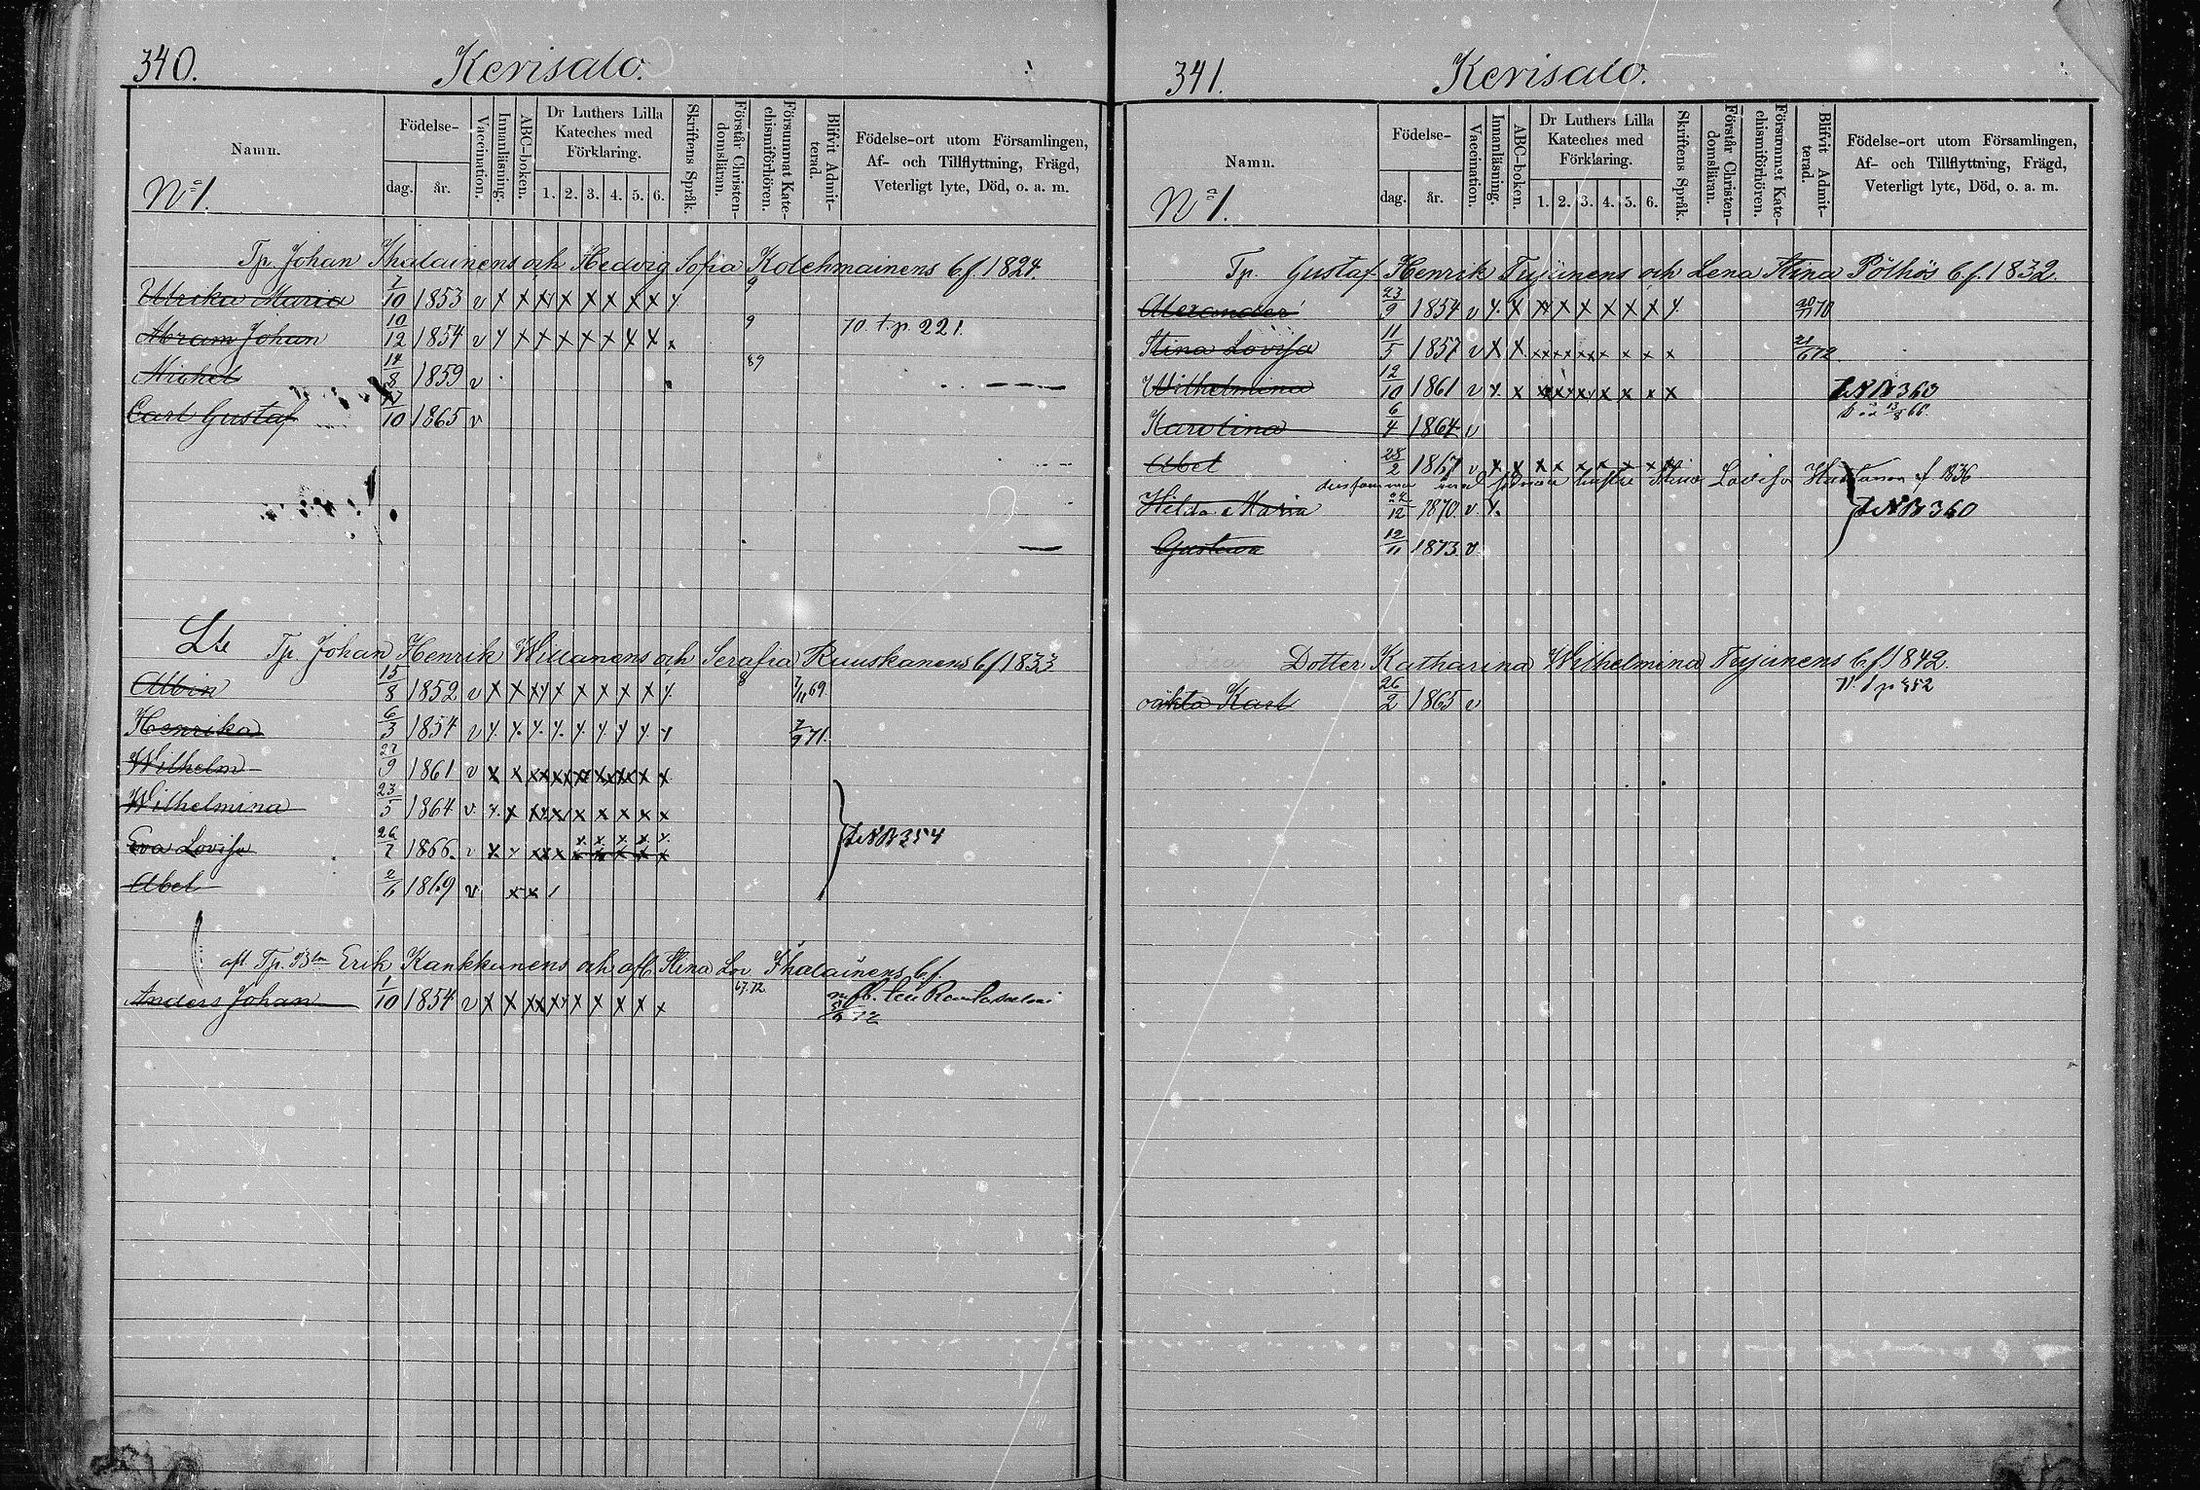 340. Kerisalo.
Namn.
Nº 1.
Födelse-
dag. år.
Vaccination.
Innanläsning.
ABC-boken.
Dr Luthers Lilla
Kateches med
Förklaring.
1. 2. 3. 4. 5. 6.
Skriftens Språk.
Förstår Christen-
domsläran.
Försummat Kate-
chismiförhören.
Blifvit Admit-
terad.
Födelse-ort utom Församlingen,
Af- och Tillflyttning, Frägd,
Veterligt lyte, Död, o. a. m.
Tp. Johan Ihalainens och Hedvig Sofia Kolehmainens b. f. 1824.
Ulrika Maria 1/10 1853 v x x x x x x x x x 9
Abram Johan 10/12 1854 v x x x x x x x x x 9 70 t. p. 221.
Michel 14/8 1859 v 69
Carl Gustaf 10 1865 v
Tp. Johan Henrik Willanens och Serafia Ruuskanens b f 1833
Albin 15/8 1852 v x x x x x x x x x 8 7/11 69.
Henrika 6/3 1854 v x x x x x x x x x 71.
Wilhelm 27/9 1861 v x x x x x x x x x
Wilhelmina 23/5 1864 v x x x x x x x x x
Eva Lovisa 26/7 1866. v x x x x x x x x x
354
Abel 2/6 1869 v x x
afl. Tp. Erik Kankkunens och afl. Stina Lov. Ihalainens b. f.
67. 72.
Anders Johan 1/10 1854 v x x x x x x x x x
72
341. Kerisalo.
Namn.
Nº 1.
Födelse-
dag. år.
Vaccination.
Innanläsning.
ABC-boken.
Dr Luthers Lilla
Kateches med
Förklaring.
1. 2. 3. 4. 5. 6.
Skriftens Språk.
Förstår Christen-
domsläran.
Försummat Kate-
chismiförhören.
Blifvit Admit-
terad.
Födelse-ort utom Församlingen,
Af- och Tillflyttning, Frägd,
Veterligt lyte, Död, o. a. m.
Tp. Gustaf Henrik Tujunens och Lena Stina Pölhös b. f. 1832.
Alexander 23/9 1854 v x x x x x x x x x 70
Stina Lovisa 11/5 1857 v x x x x x x x x x 21/6 72
Wilhelmina 12/10 1861 v x x x x x x x x x 363
Karolina 6/4 1864 v
Abel 28/2 1867 v x x x x x x x x
Stina Lovisa f. 1836
Hilda Maria 12 1870. v. x. 360
Gustava 12/11 1873. v
Dotter Katharina Wilhelmina Tujunens b. f 1842.
oäkta Karl 26/2 1865 v